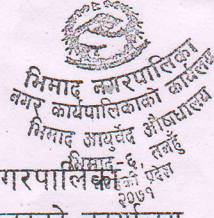 भिमाद नगरपालिका
नगर कार्यपालिकाको कार्यालय
भिमाद आयुर्वेद औषधालय
भिमाद-६, तनहुँ
गण्डकी प्रदेश
२०७१
गरपालिका